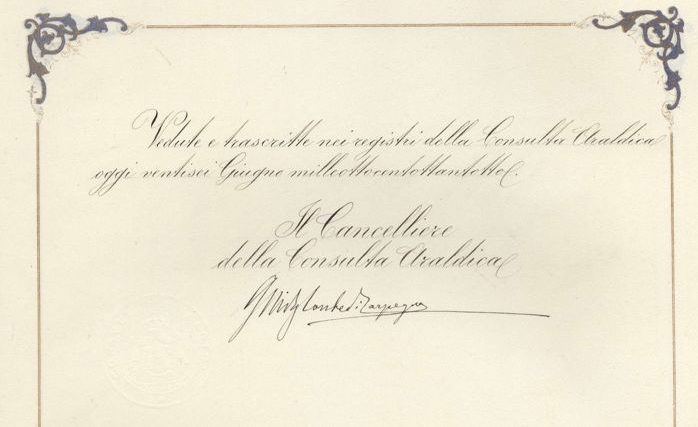 Vedute e trascritte nei registri della Consulta Araldica
oggi ventisei Giugno milleottocentottantotto.
Il Cancelliere
della Consulta Araldica